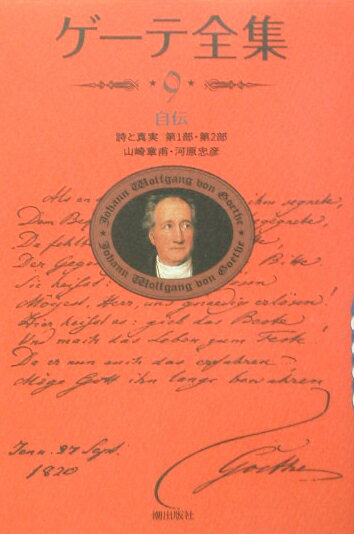 ゲーテ全集
9
自伝
詩と真実 第1部・第2部
山崎章甫・河原忠彦
Johann Wolfgang von Goethe
Johann Wolfgang von Goethe
Als an ihm segnete,
Dem
Da fehlte
Der Bitte
Sie heißt:
Mögest, Herr, uns gnaedig erlösen!
Hier heißt es: gieb das Beste
Und mach das Leben zum Fest,
Da er nun auch das erfahren
Möge Gott ihn lange bewahren
Jena. 27 Sept.
1820
Goethe
潮出版社